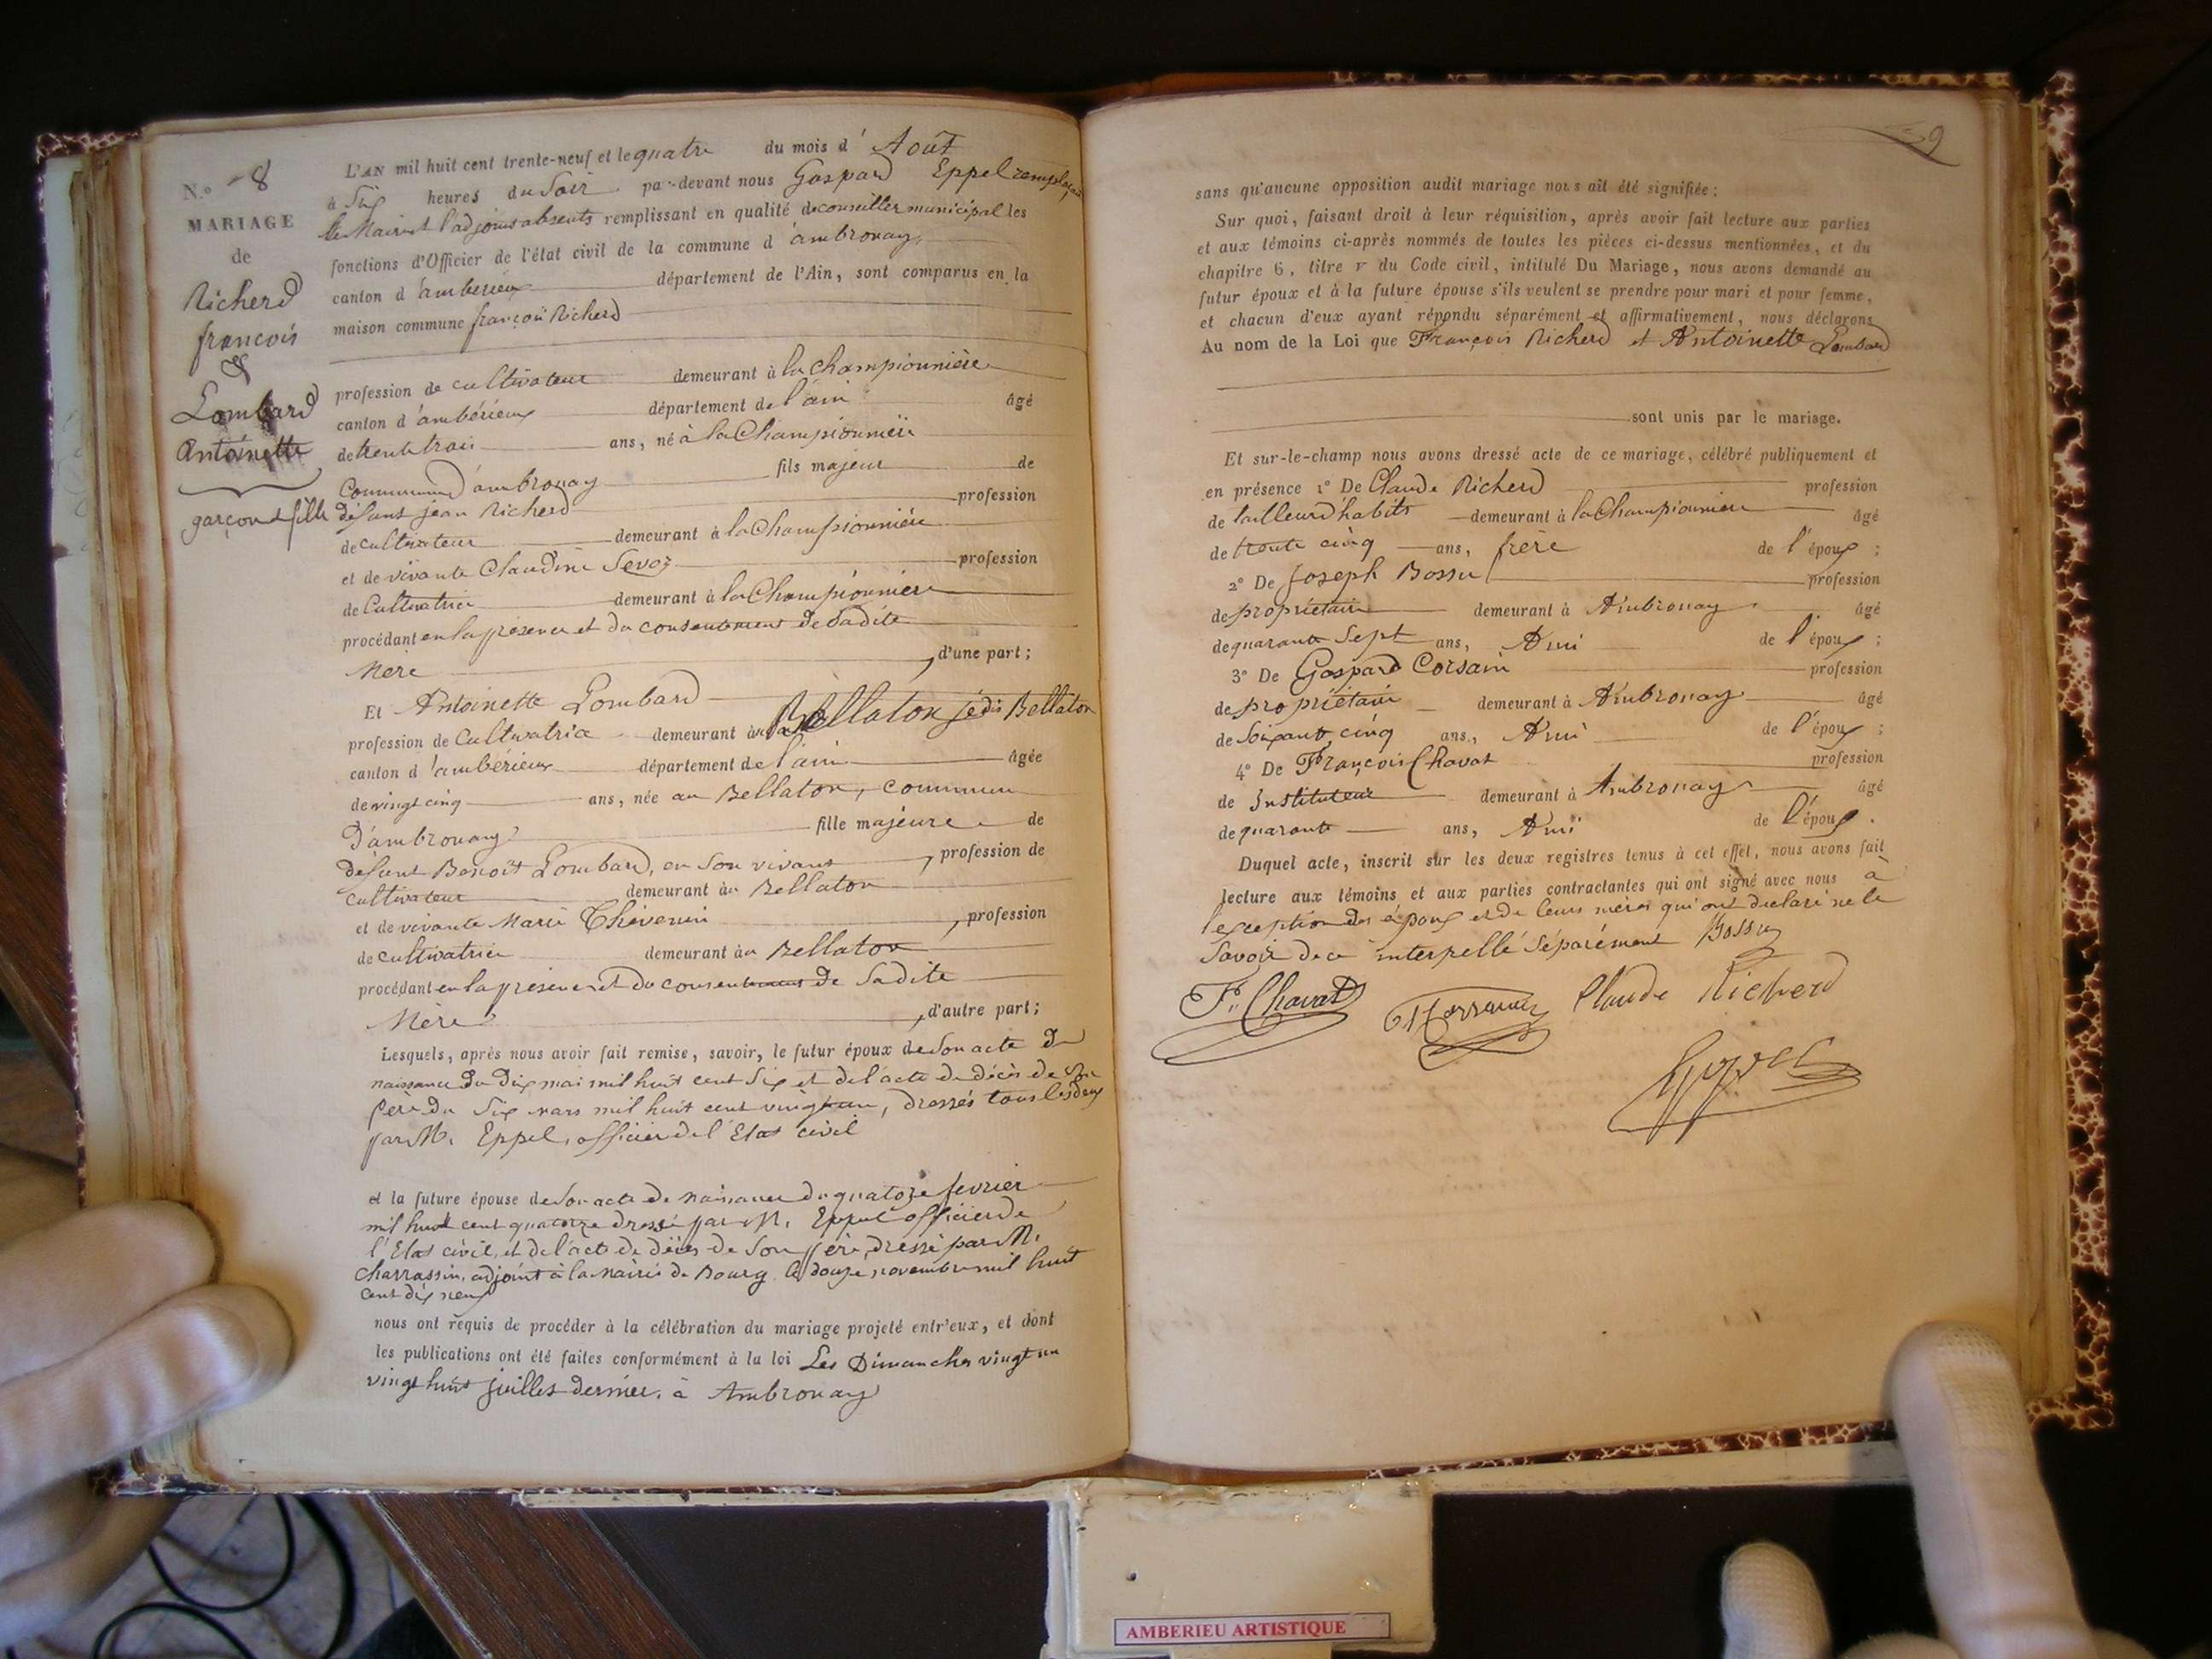 N.o 8
MARIAGE
de
Richerd
françois
&
Lombard
Antoinette
garçon et fille
L'AN mil huit cent trente-neuf et le quatre du mois d' Août
à Six heures du Soir par-devant nous Gaspard Eppel remplaçant
le Maire et l'adjoint absents remplissant en qualité de conseiller municipal les
fonctions d'Officier de l'état civil de la commune d'ambronay,
canton d'ambérieux département de l'Ain, sont comparus en la
maison commune françois Richerd
profession de cultivateur demeurant à la Championnière
canton d'ambérieux département de l'ain âgé
de trente trois ans, né à la Championnière
Commune d'ambronay fils majeur de
défunt jean Richerd profession
de cultivateur demeurant à la Championnière
et de vivante Claudine Sevoz profession
de Cultivatrice demeurant à la Championnière
procédant en la présence et du consentement de Sadite
Mère, d'une part;
Et Antoinette Lombard
profession de Cultivatrice demeurant au Bellaton je dis Bellaton
canton d'ambérieux département de l'ain âgée
de vingt cinq ans, née au Bellaton, commune
D'ambronay fille majeure de
défunt Benoît Lombard, en Son vivant, profession de
cultivateur demeurant au Bellaton
et de vivante Marie Thévenin, profession
de cultivatrice demeurant au Bellaton
procédant en la présence et Du consentement de Sadite
Mère, d'autre part;
Lesquels, après nous avoir fait remise, savoir, le futur époux de Son acte de
naissance du Dix mai mil huit cent Six et de l'acte de décès de Son
père du Six mars mil huit cent vingt un, dressés tous les deux
par M. Eppel, officier de l'Etat civil
et la future épouse de Son acte de naissance du quatorze fevrier
mil huit cent quatorze dressé par M. Eppel officier de
l'Etat civil, et de l'acte de décès de Son père, dressé par M.
Charrassin, adjoint à la Mairie de Bourg, le douze novembre mil huit
cent dix neuf
nous ont requis de procéder à la célébration du mariage projeté entr'eux, et dont
les publications ont été faites conformément à la loi Les Dimanches vingt un
vingt huit juillet dernier, à Ambronay
9
sans qu'aucune opposition audit mariage nous ait été signifiée;
Sur quoi, faisant droit à leur réquisition, après avoir fait lecture aux parties
et aux témoins ci-après nommés de toutes les pièces ci-dessus mentionnées, et du
chapitre 6, titre V du Code civil, intitulé Du Mariage, nous avons demandé au
futur époux et à la future épouse s'ils veulent se prendre pour mari et pour femme,
et chacun d'eux ayant répondu séparément et affirmativement, nous déclarons
Au nom de la Loi que François Richerd et Antoinette Lombard
sont unis par le mariage.
Et sur-le-champ nous avons dressé acte de ce mariage, célébré publiquement et
en présence 1° De Claude Richerd profession
de tailleur d'habits demeurant à la Championnière âgé
de trente cinq ans, frère de l'époux;
2° De Joseph Bossu profession
de propriétaire demeurant à Ambronay âgé
de quarante Sept ans, Ami de l'époux;
3° De Gaspard Corsain profession
de propriétaire demeurant à Ambronay âgé
de Soixante cinq ans, Ami de l'époux;
4° De François Chavat profession
de Instituteur demeurant à Ambronay âgé
de quarante ans, Ami de l'époux.
Duquel acte, inscrit sur les deux registres tenus à cet effet, nous avons fait
lecture aux témoins et aux parties contractantes qui ont signé avec nous à
l'exception des époux et de leurs mères qui ont déclaré ne le
Savoir de ce interpellé Séparément Bossu
F. Chavat Claude Richerd
Eppel
AMBERIEU ARTISTIQUE